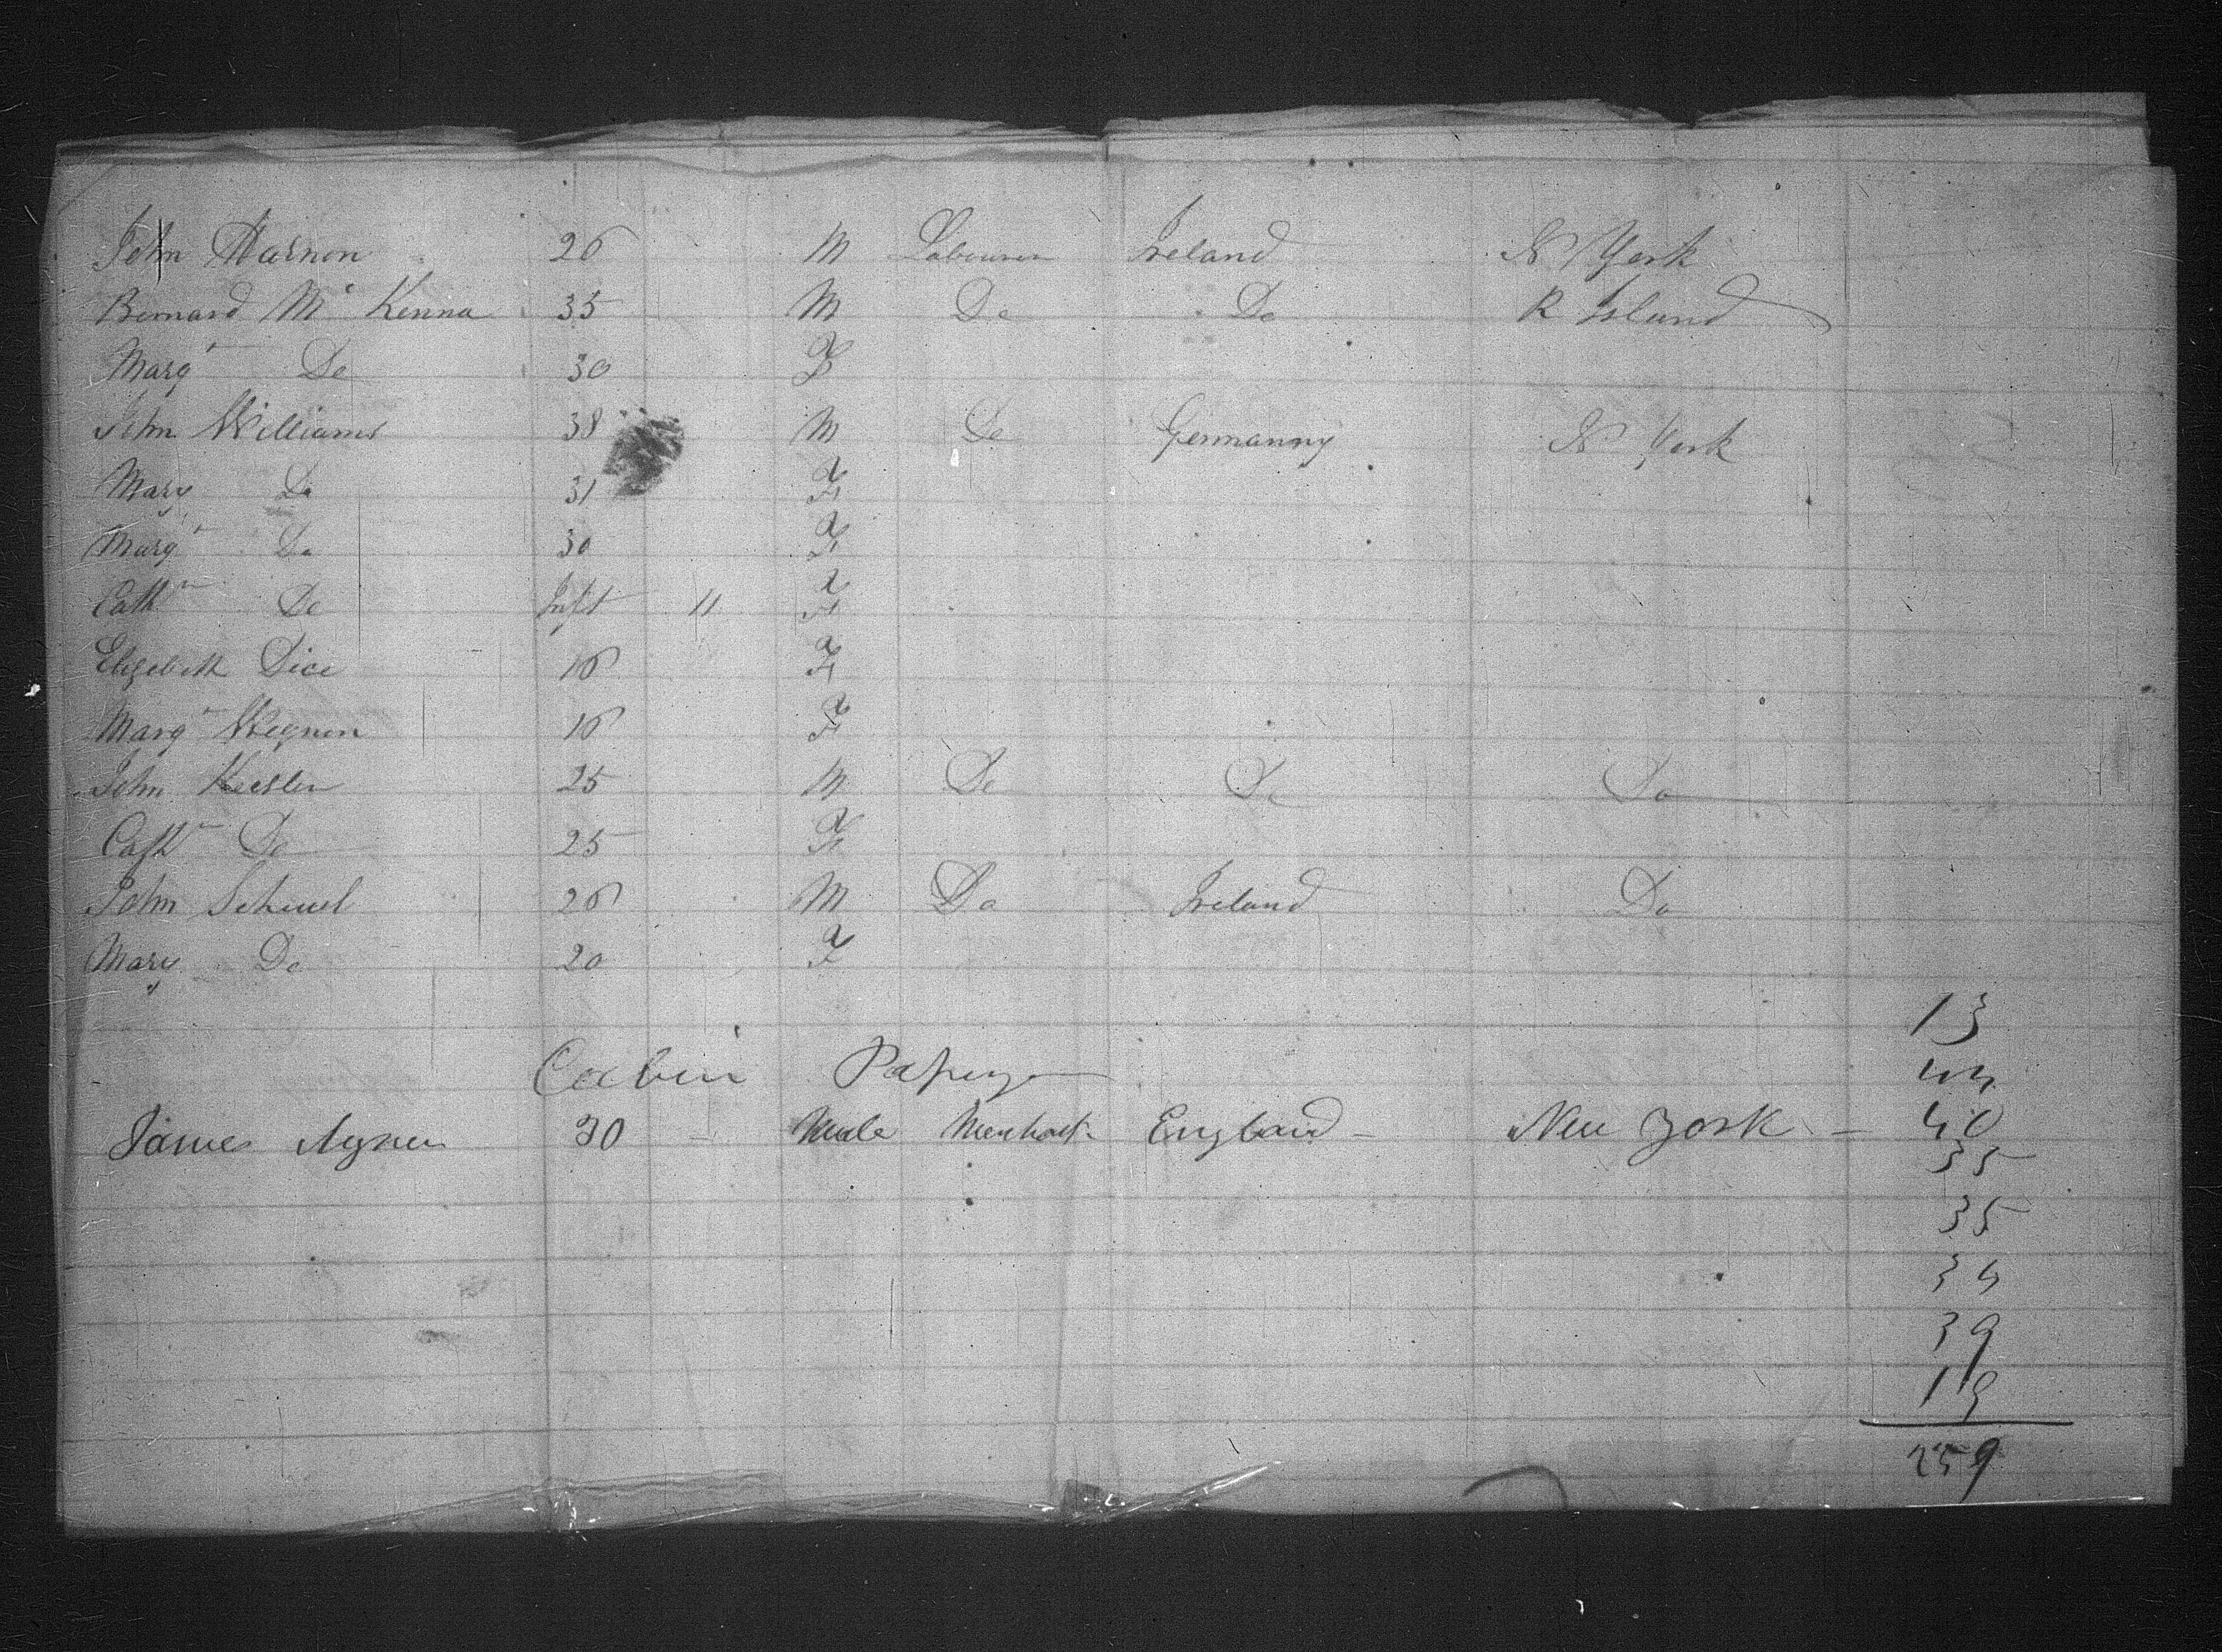 John Marnon 26 M Labourer Ireland N York
Bernard Mc Kenna 35 M Do Do R Island
Margt Do 30 F
John Williams 38 M Do Germanny N York
Mary Do 31 F
Margt Do 30 F
Cathn Do Inft 11 F
Elizabeth Dice 16 F
Margt Wegner 16 F
John Keesler 25 M Do Do Do
Cathn Do 25 F
John 26 M Do Ireland Do
Mary Do 20 F
13
Cabin 44
James 30 - Male England - New York - 40
35
35
34
39
19
259